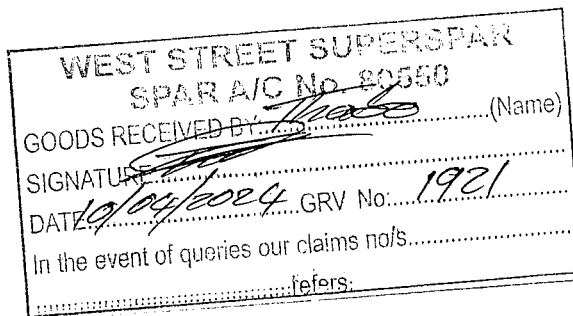 WEST STREET SUPERSPAR
SPAR A/C No 80550
GOODS RECEIVED BY:..............Thabo..............(Name)
SIGNATURE..............................
DATE: 10/04/2024 GRV No: 1921
In the event of queries our claims no/s..............................
..............................refers: